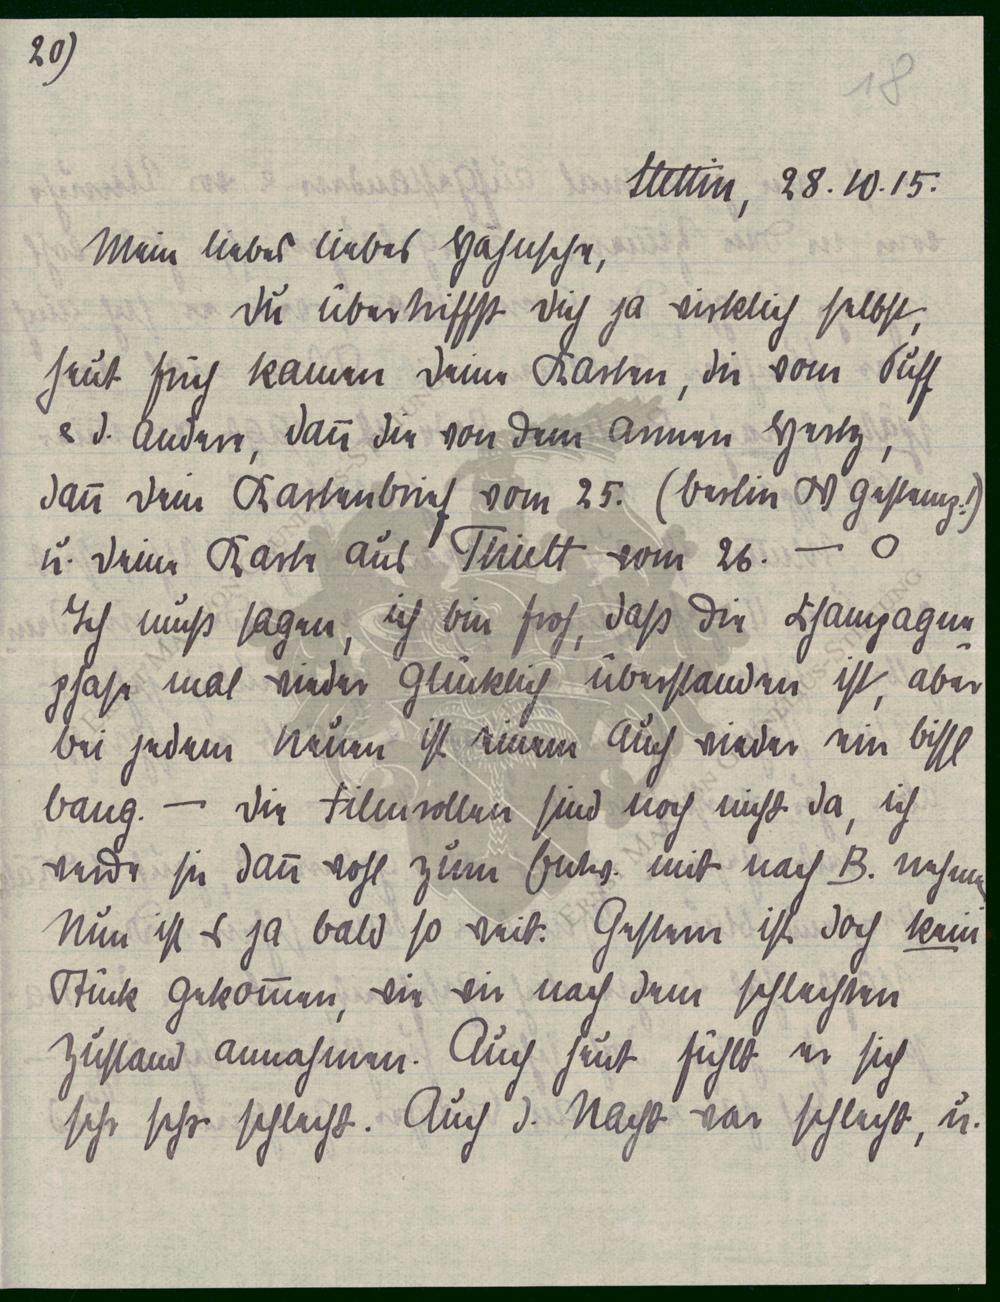 20)
18
Stettin, 28.10.15.
Mein liebes liebes Hähnsche,
Du übertriffst Dich ja wirklich selbst,
heut früh kamen Deine Karten, die vom Puff
& d. andere, dañ die von dem armen Hertz,
dañ Dein Kartenbrief vom 25. (Berlin W gestemp.!)
u. Deine Karte aus Thielt vom 26. — O
Ich muß sagen, ich bin froh, daß die Champagne
phase mal wieder glücklich überstanden ist, aber
bei jedem Neuen ist einem auch wieder ein bissl
bang. — Die Filmrollen sind noch nicht da, ich
werde sie dañ wohl zum Entw. mit nach B. nehmen
Nun ist es ja bald so weit. Gestern ist doch kein
Stück gekom̄en, wie wir nach dem schlechten
Zustand annahmen. Auch heut fühlt er sich
sehr sehr schlecht. Auch d. Nacht war schlecht, u.